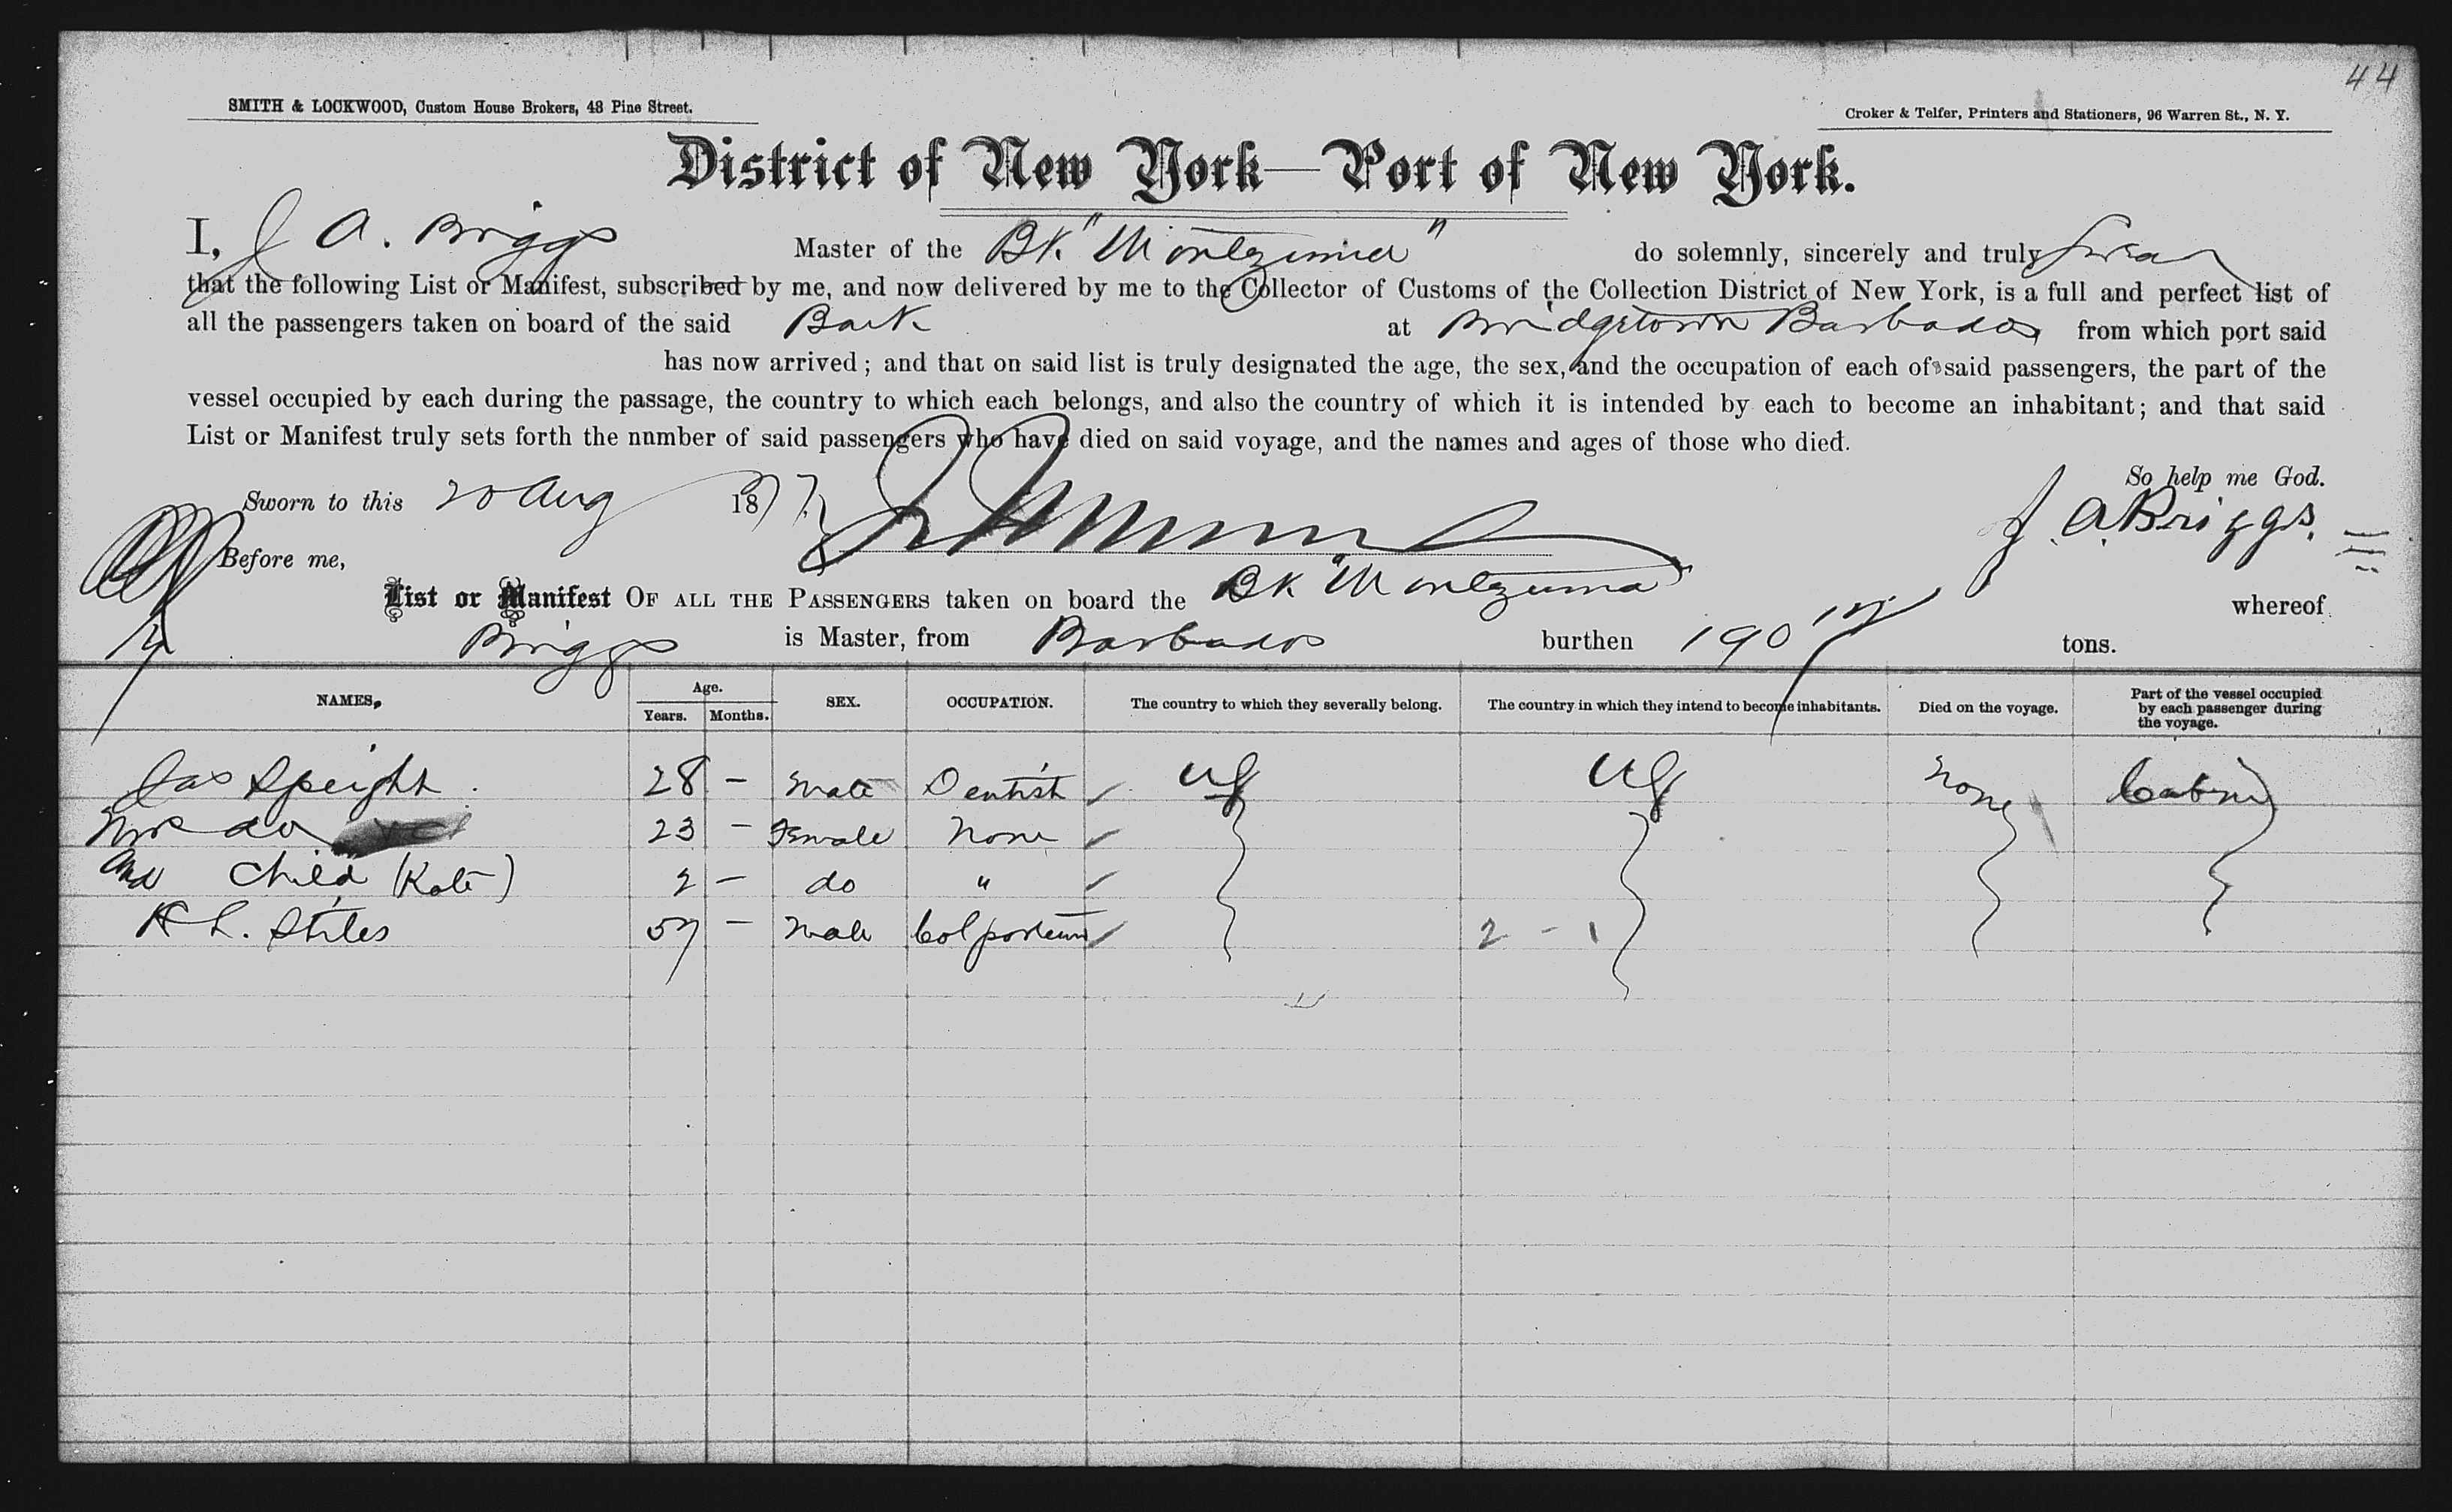 44
SMITH & LOCKWOOD, Custom House Brokers, 48 Pine Street.
Croker & Telfer, Printers and Stationers, 96 Warren St., N. Y.
District of New York—Port of New York.
I, J A. Briggs Master of the Bk "Montezuma" do solemnly, sincerely and truly swear
that the following List or Manifest, subscribed by me, and now delivered by me to the Collector of Customs of the Collection District of New York, is a full and perfect list of
all the passengers taken on board of the said Bark at Bridgetown Barbados from which port said
has now arrived; and that on said list is truly designated the age, the sex, and the occupation of each of said passengers, the part of the
vessel occupied by each during the passage, the country to which each belongs, and also the country of which it is intended by each to become an inhabitant; and that said
List or Manifest truly sets forth the nnmber of said passengers who have died on said voyage, and the names and ages of those who died.
So help me God.
Sworn to this 20 Aug 1877
J. A. Briggs.
Before me,
List or Manifest OF ALL THE PASSENGERS taken on board the Bk "Montezuma" whereof
Briggs is Master, from Barbados burthen 190 tons.
NAMES, Age. Years. Months. SEX. OCCUPATION. The country to which they severally belong. The country in which they intend to become inhabitants. Died on the voyage. Part of the vessel occupied by each passenger during the voyage.
Jas Speight. 28 - Male Dentist US US None Cabin
Mrs do 23 - Female None
and Child (Kate) 2 - do "
H L. Stiles 57 - Male Colporteur 2 - 1